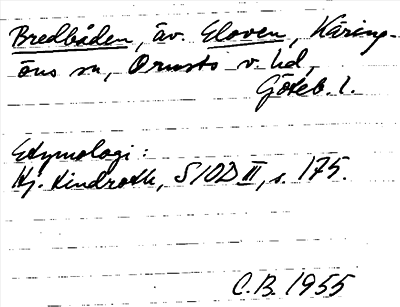 Bredbåden, äv. Eloven, Käring-
öns sn, Orusts v. hd,
Göteb. l.
Etymologi:
Hj. Lindroth, SIOD III, s. 175.
C.B. 1955